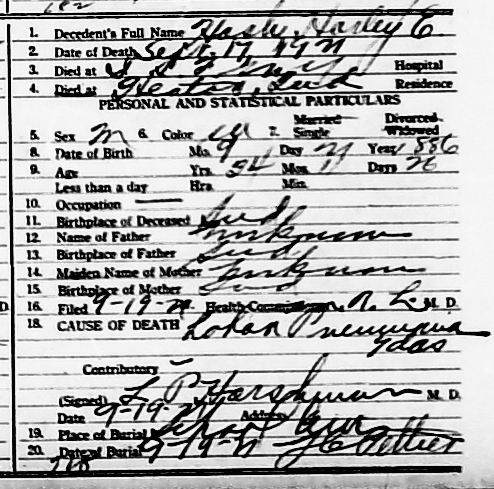 1. Decedent's Full Name Harley E.
2. Date of Death Sept. 17, 1921
3. Died at Hospital
4. Died at Ind Residence
PERSONAL AND STATISTICAL PARTICULARS
5. Sex M 6. Color W 7. Married Single Divorced Widowed
8. Date of Birth Mo. 9 Day 21 Year 1886
9. Age Yrs. 34 Mos. 11 Days 26
Less than a day Hrs. Min.
10. Occupation —
11. Birthplace of Deceased Ind
12. Name of Father Unknown
13. Birthplace of Father Ind
14. Maiden Name of Mother Unknown
15. Birthplace of Mother Ind
16. Filed 9-19-21 Health Commissioner M. D.
18. CAUSE OF DEATH Lobar Pneumonia
7 das
Contributory –
(Signed) L. P. Harshman M. D.
Date 9-19-21 Address
19. Place of Burial
20. Date of Burial 9-19-21